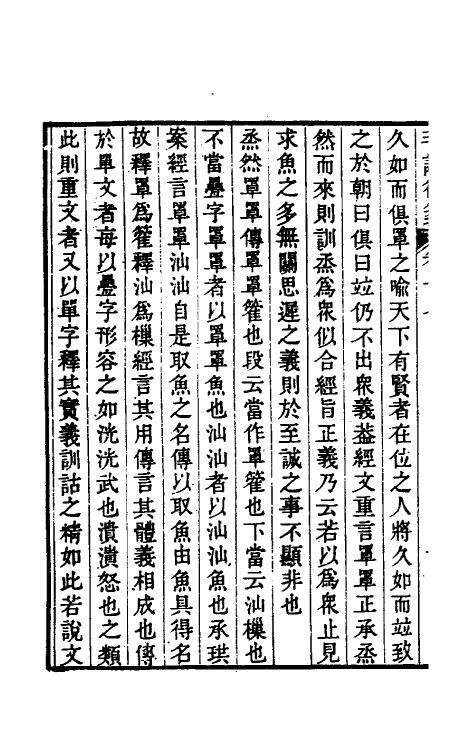 久如而俱罩之喻天下有賢者在位之人將久如而竝致
之於朝曰俱曰竝仍不出衆義葢經文重言罩罩正承烝
然而來則訓烝爲衆似合經旨正義乃云若以爲衆止見
求魚之多無關思遲之義則於至誠之事不顯非也
烝然罩罩傳罩罩籗也段云當作罩籗也下當云汕樔也
不當疊字罩罩者以罩罩魚也汕汕者以汕汕魚也承珙
案經言罩罩汕汕自是取魚之名傳以取魚由魚具得名
故釋罩爲籗釋汕爲樔經言其用傳言其體義相成也傳
於單文者每以疊字形容之如洸洸武也潰潰怒也之類
此則重文者又以單字釋其實義訓詁之精如此若說文